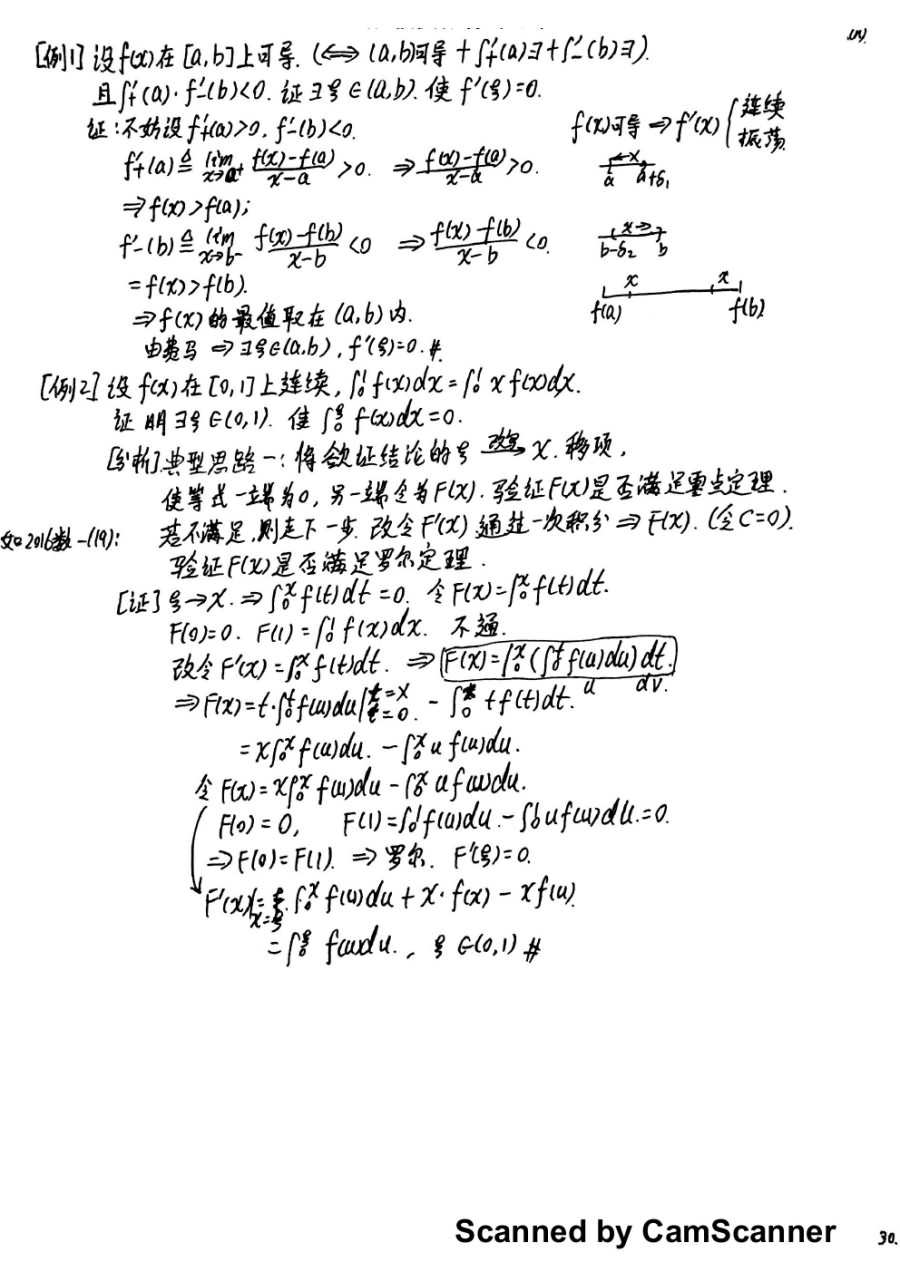 [例1] 设f(x)在[a,b]上可导. (⟺ (a,b)可导 + f'₊(a)∃ + f'₋(b)∃).
且f'₊(a)·f'₋(b)<0. 证∃ξ∈(a,b). 使 f'(ξ)=0.
证:不妨设f'₊(a)>0, f'₋(b)<0.
f(x)可导 ⇒ f'(x) { 连续
振荡
f'₊(a) ≜ lim_{x→a⁺} (f(x)-f(a))/(x-a) >0. ⇒ (f(x)-f(a))/(x-a) >0.
x
a a+δ₁
⇒f(x)>f(a);
f'₋(b) ≜ lim_{x→b⁻} (f(x)-f(b))/(x-b) <0 ⇒ (f(x)-f(b))/(x-b) <0.
x
b-δ₂ b
=f(x)>f(b).
x x
f(a) f(b)
⇒f(x)的最值取在(a,b)内.
由费马 ⇒ ∃ξ∈(a,b), f'(ξ)=0.#
[例2] 设f(x)在[0,1]上连续, ∫₀¹f(x)dx=∫₀¹ x f(x)dx.
证明∃ξ∈(0,1). 使 ∫₀^ξ f(x)dx=0.
[分析]典型思路一:将欲证结论的ξ 改写 x. 移项,
使等式一端为0, 另一端令为F(x). 验证F(x)是否满足零点定理.
如2016数一(19):
若不满足,则走下一步. 改令F'(x) 通过一次积分 ⇒ F(x). (令C=0).
验证F(x)是否满足罗尔定理.
[证] ξ→x. ⇒∫₀^x f(t)dt=0. 令F(x)=∫₀^x f(t)dt.
F(0)=0. F(1)=∫₀¹ f(x)dx. 不通.
改令F'(x)=∫₀^x f(t)dt. ⇒ F(x)=∫₀^x (∫₀^t f(u)du) dt.
u dv.
⇒F(x)=t·∫₀^t f(u)du|_{t=0}^{t=x}. - ∫₀^x t f(t)dt.
=x∫₀^x f(u)du. - ∫₀^x u f(u)du.
令F(x)=x∫₀^x f(u)du-∫₀^x u f(u)du.
F(0)=0, F(1)=∫₀¹f(u)du.-∫₀¹uf(u)du.=0.
⇒F(0)=F(1). ⇒ 罗尔. F'(ξ)=0.
F'(x)|_{x=ξ} = ∫₀^x f(u)du + x·f(x) - xf(u).
=∫₀^ξ f(u)du., ξ∈(0,1) #
Scanned by CamScanner
30.